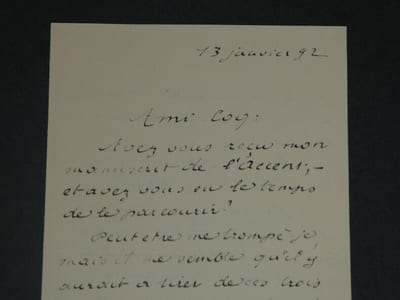 13 janvier 92
Ami Coq:
Avez vous reçu mon
manuscrit de l'Accent,-
et avez vous eu le temps
de le parcourir?
Peut etre me trompé-je
mais il me semble qu'il y
aurait a tirer de ces trois